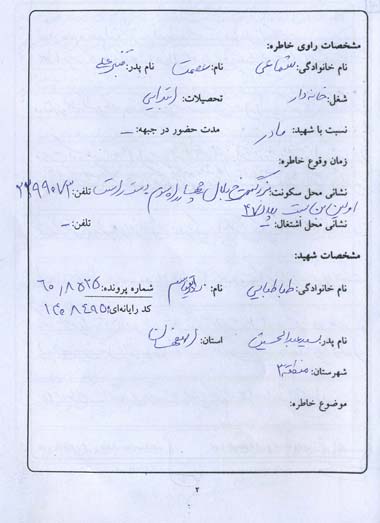 مشخصات راوی خاطره:
نام خانوادگی: شفاعی نام: عصمت نام پدر:
شغل: خانه دار تحصیلات: ابتدایی
نسبت با شهید: مادر مدت حضور در جبهه: ـ
زمان وقوع خاطره:
نشانی محل سکونت: بزرگمهر خ بلال دست راست تلفن: ۲۲۹۹۰۷۳
اولین بن بست پلاک ۴۷
نشانی محل اشتغال: تلفن: ـ
مشخصات شهید:
نام خانوادگی: طباطبایی نام: شماره پرونده: ۶۰۱۸۵۲۵
کد رایانه‌ای: ۱۴۰۸۴۹۵
نام پدر: سیدعبدالحسین استان: اصفهان
شهرستان: منطقه ۳
موضوع خاطره:
۲